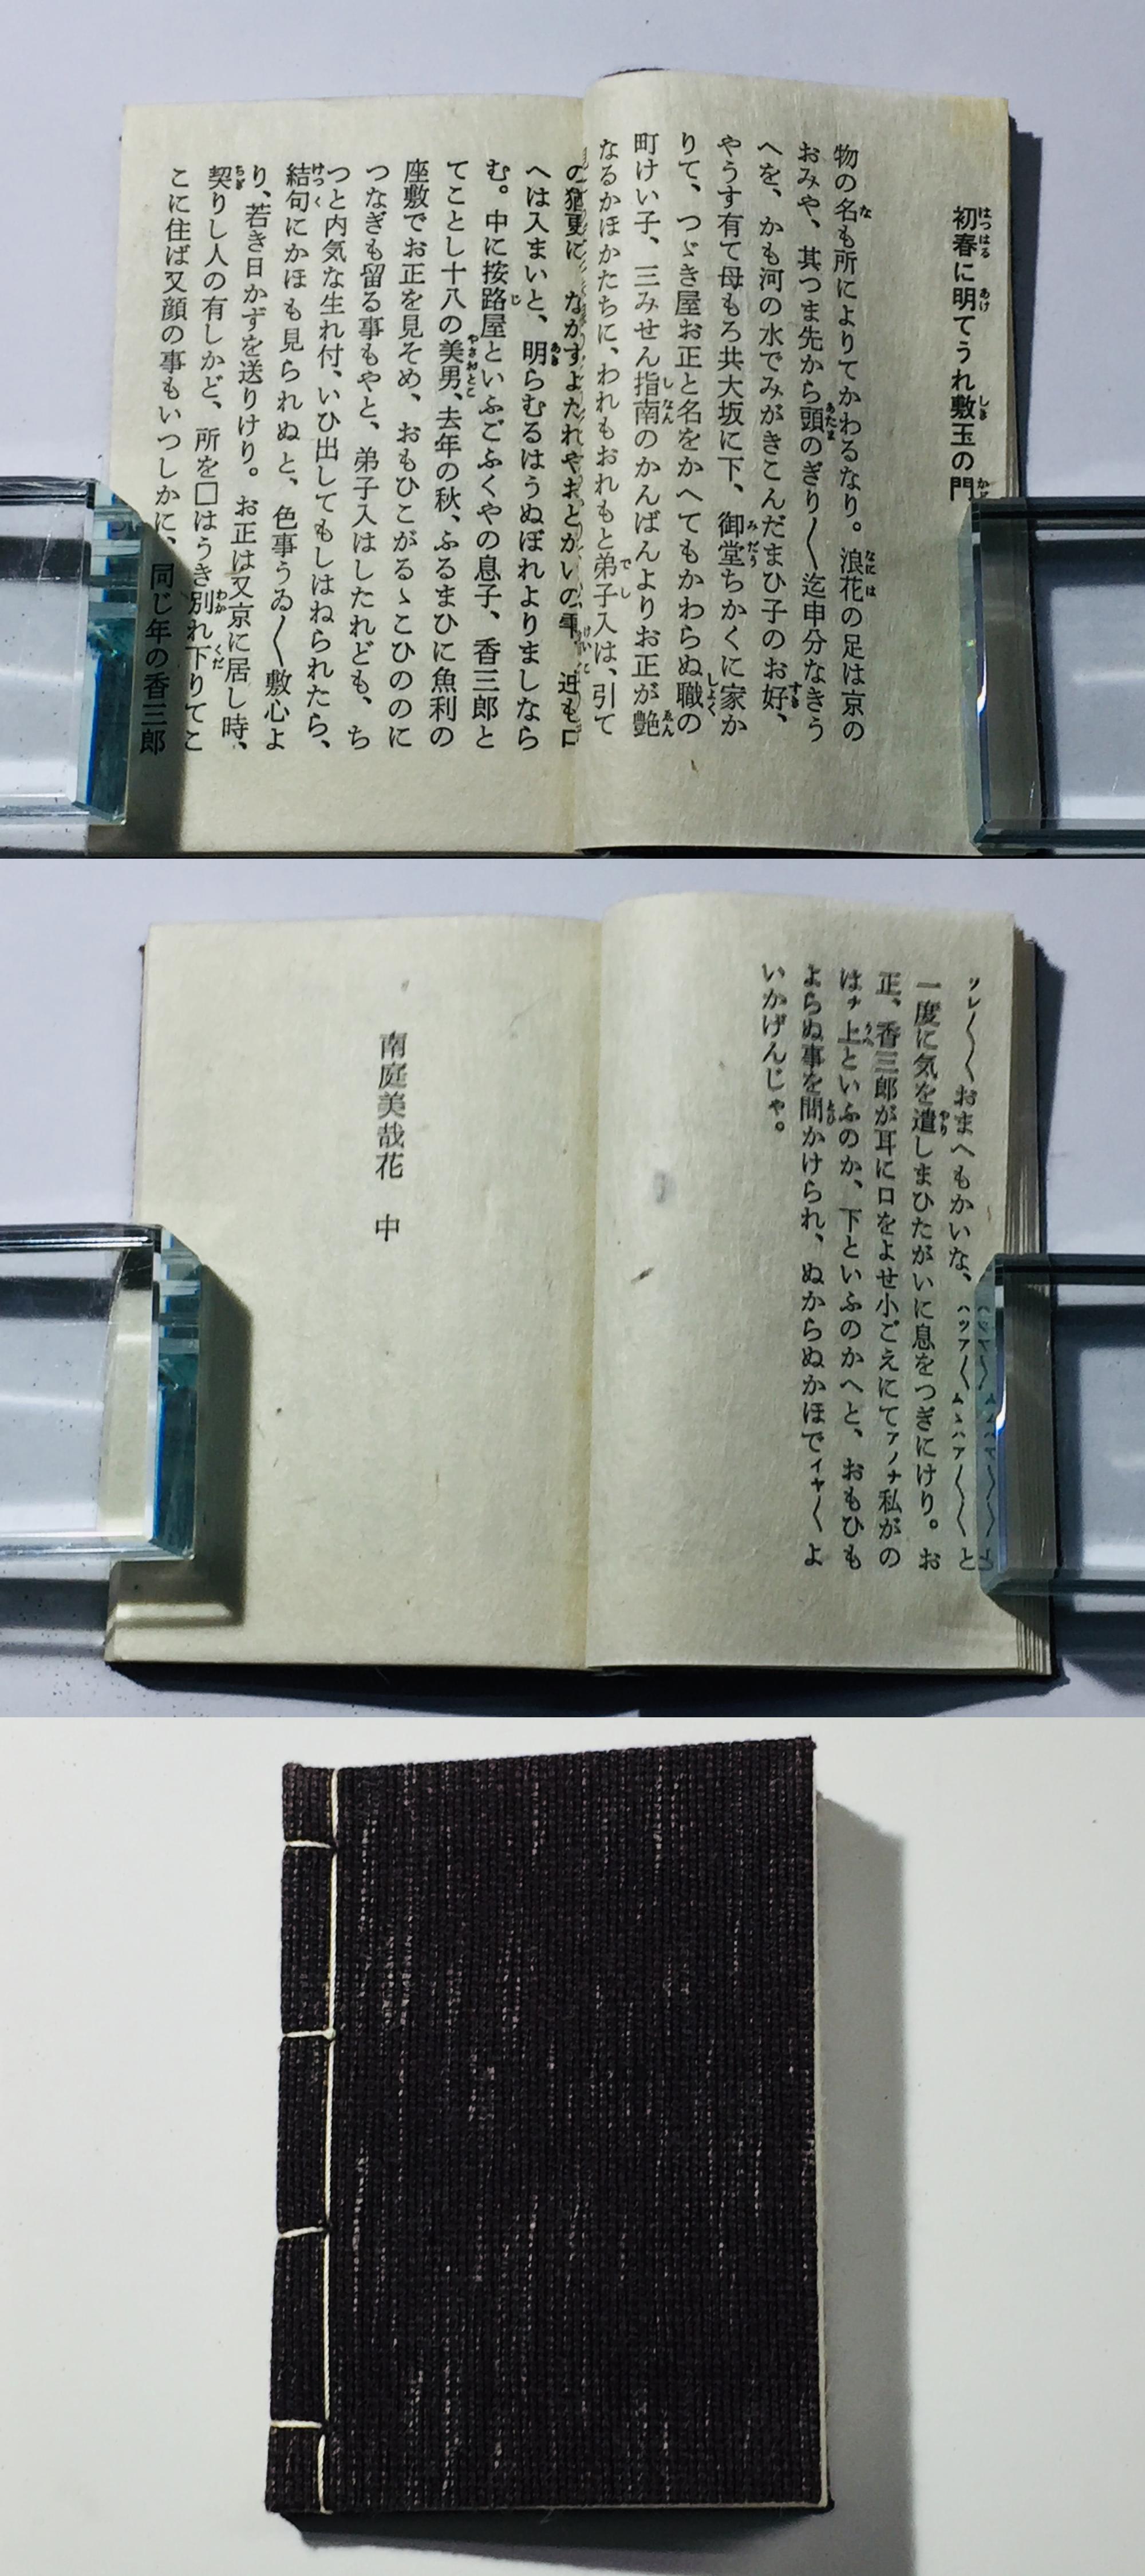 初春に明てうれ敷玉の門
物の名も所によりてかわるなり。浪花の足は京の
おみや、其つま先から頭のぎり〳〵迄申分なきう
へを、かも河の水でみがきこんだまひ子のお好、
やうす有て母もろ共大坂に下、御堂ちかくに家か
りて、つゞき屋お正と名をかへてもかわらぬ職の
町けい子、三みせん指南のかんばんよりお正が艶
なるかほかたちに、われもおれもと弟子入は、引て
の猶更に、ながすよだれやおとがいの雫、迚も口
へは入まいと、明らむるはうぬぼれよりましなら
む。中に按路屋といふごふくやの息子、香三郎と
てことし十八の美男、去年の秋、ふるまひに魚利の
座敷でお正を見そめ、おもひこがるゝこひののに
つなぎも留る事もやと、弟子入はしたれども、ち
つと内気な生れ付、いひ出してもしはねられたら、
結句にかほも見られぬと、色事うゐ〳〵敷心よ
り、若き日かずを送りけり。お正は又京に居し時、
契りし人の有しかど、所を□はうき別れ下りてこ
こに住ば又顔の事もいつしかに、同じ年の香三郎
ソレ〳〵〳〵おまへもかいな、ハツア〳〵ムヽハア〳〵〳〵と
一度に気を遣しまひたがいに息をつぎにけり。お
正、香三郎が耳に口をよせ小ごえにてアノナ私がの
はナ上といふのか、下といふのかへと、おもひも
よらぬ事を間かけられ、ぬからぬかほでイヤ〳〵よ
いかげんじゃ。
南庭美哉花 中